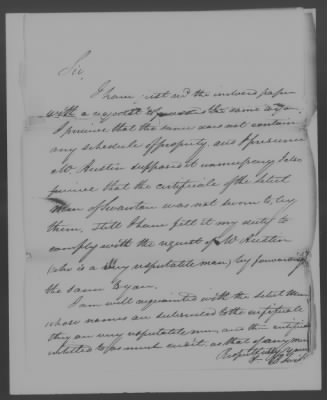 Sir,
I have just recd the inclosed paper
with a request to send the same to you
I perceive that the same does not contain
any schedule of property, and I presume
Mr Austin supposed it unnecessary I also
perceive that the certificate of the Select
Men of Swanton was not sworn to, by
them. Still I have felt it my duty to
comply with the request of Mr Austin
(who is a very respectable man) by forwarding
the same to you.
I am well acquainted with the Select Men
whose names are subscribed to the certificate
they are very respectable men, and their certificate
entitled to as much credit, as that of any men
Respectfully Yours